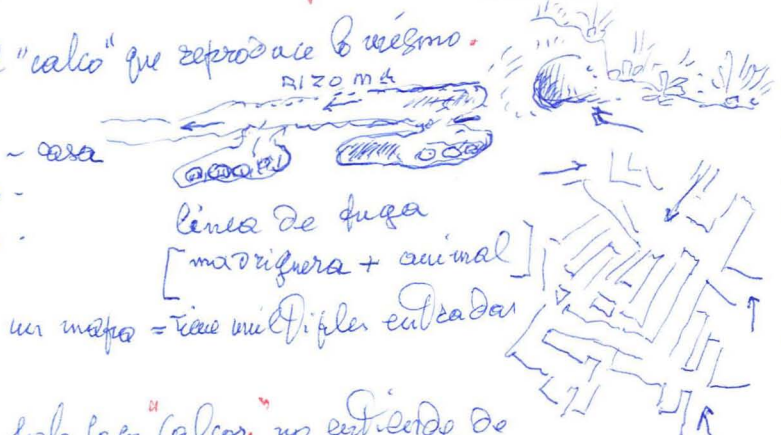 "calco" que reproduce lo mismo.
RIZOMA
- casa
-
-
línea de fuga
[madriguera + animal]
un mapa = tiene múltiples entradas
solo hace "calcos" no entiende de